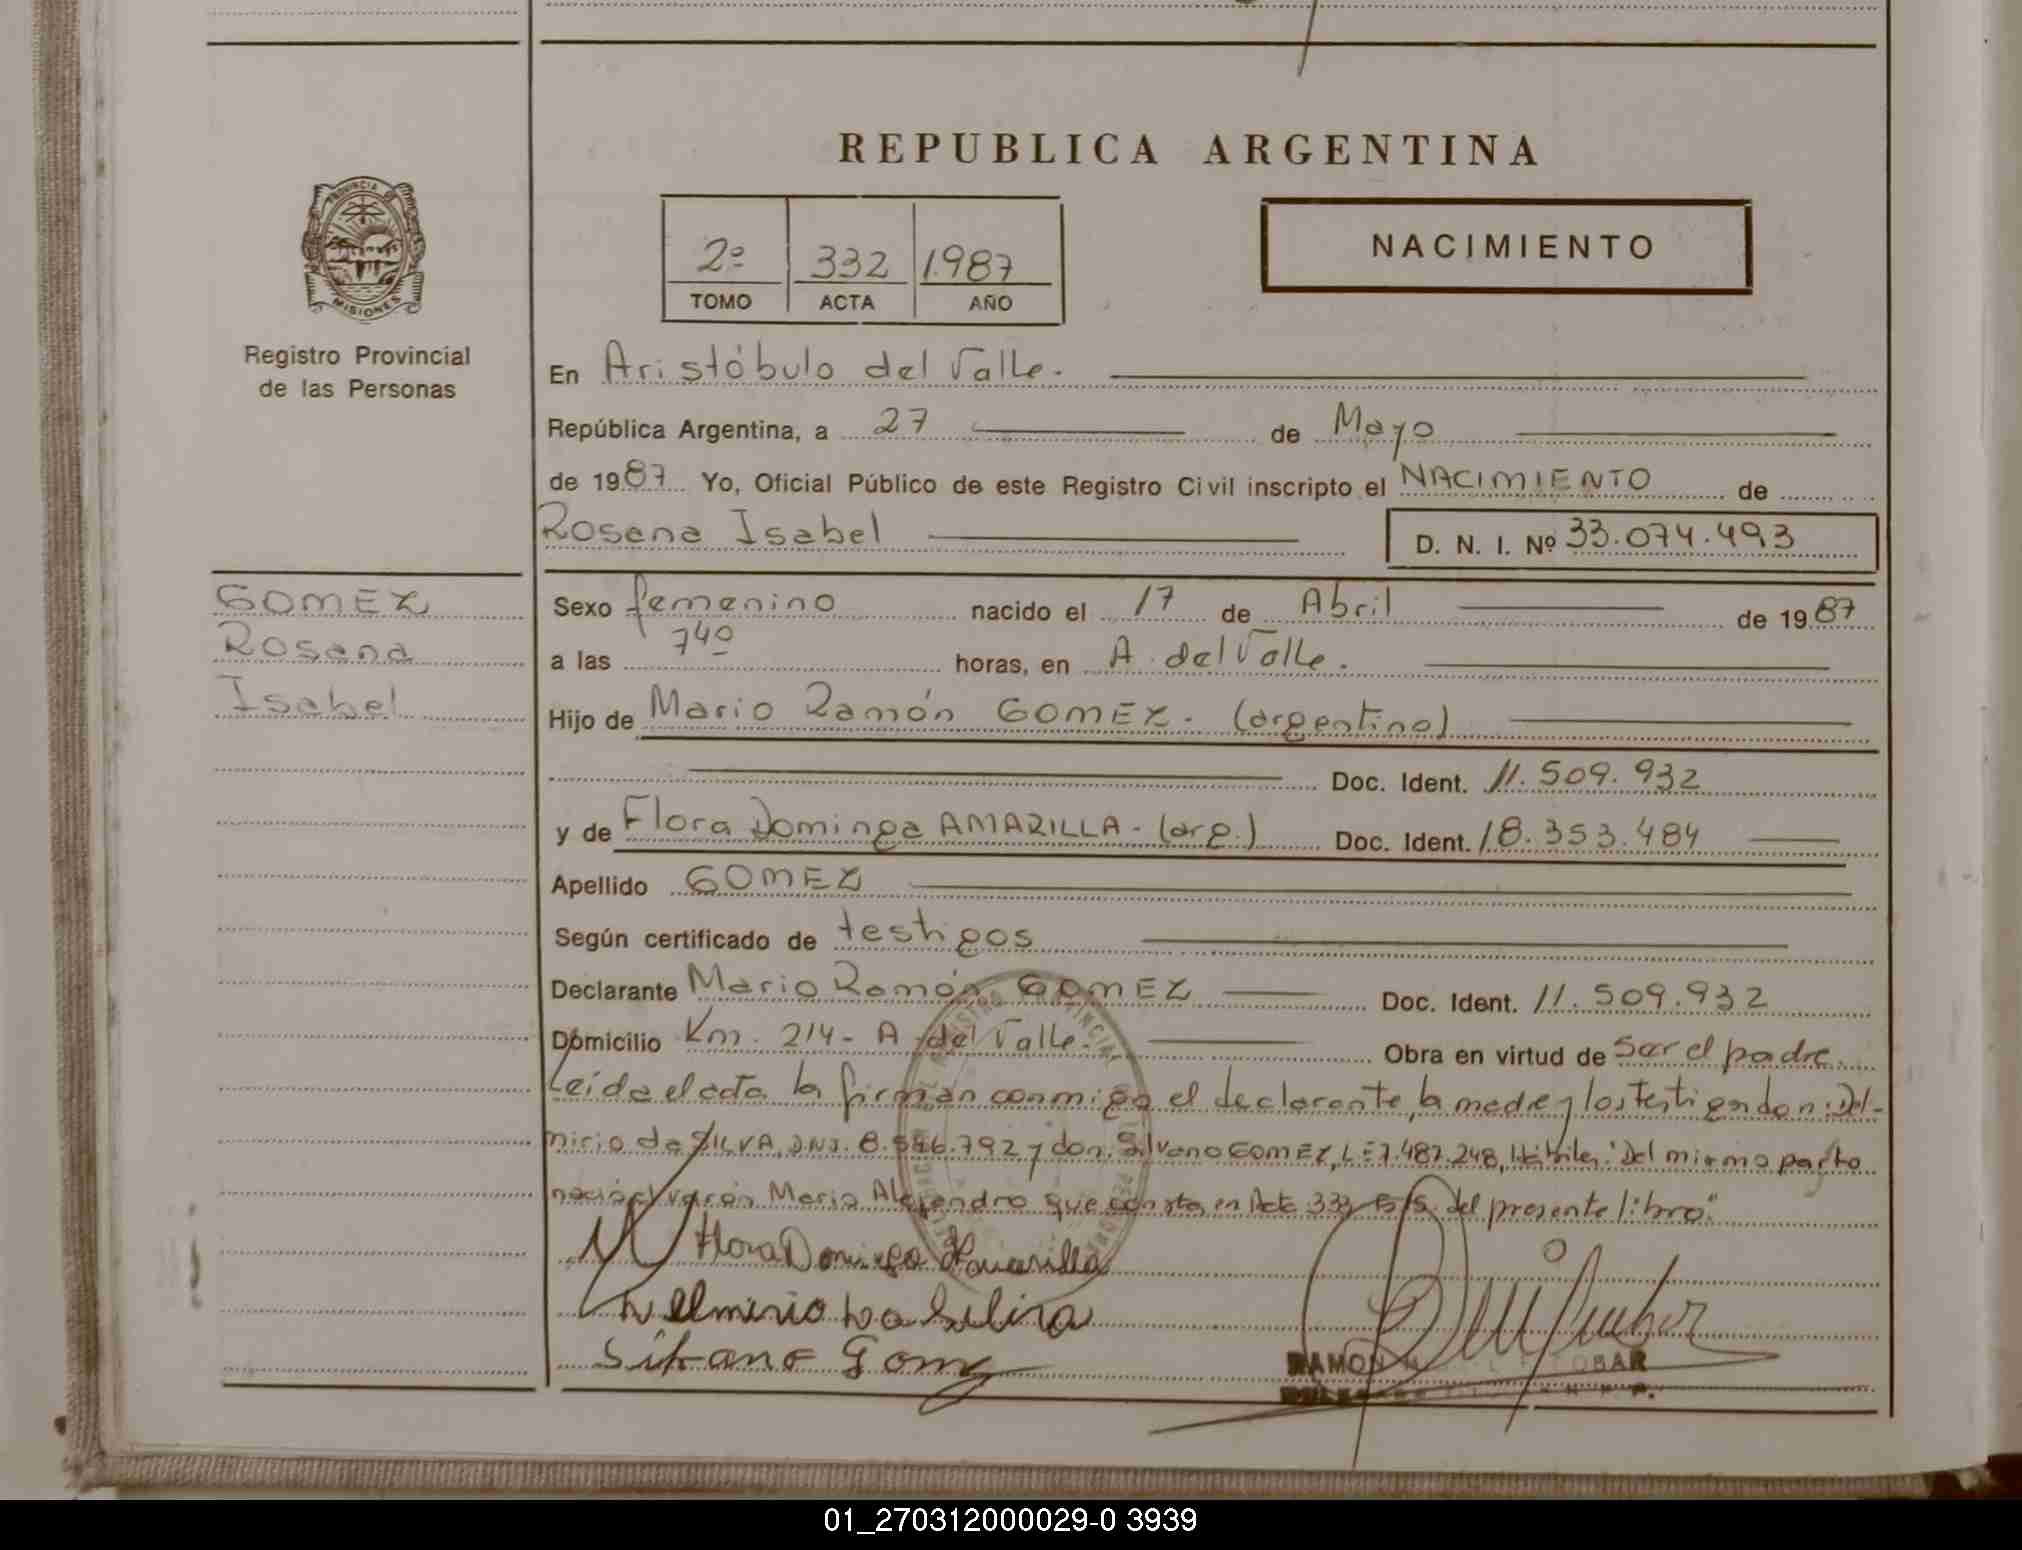 REPUBLICA ARGENTINA
PROVINCIA DE
MISIONES
Registro Provincial
de las Personas
2º 332 1987
TOMO ACTA AÑO
NACIMIENTO
En Aristóbulo del Valle.
República Argentina, a 27 de Mayo
de 1987 Yo, Oficial Público de este Registro Civil inscripto el NACIMIENTO de
Rosana Isabel D. N. I. Nº 33.074.493
GOMEZ
Rosana
Isabel
Sexo femenino nacido el 17 de Abril de 1987
a las 7⁴⁰ horas, en A. del Valle.
Hijo de Mario Ramón GOMEZ. (argentino)
Doc. Ident. 11.509.932
y de Flora Dominga AMARILLA - (arg.) Doc. Ident. 18.353.484
Apellido GOMEZ
Según certificado de testigos
Declarante Mario Ramón GOMEZ Doc. Ident. 11.509.932
Domicilio Km. 214 - A. del Valle. Obra en virtud de ser el padre
Leída el acta la firman conmigo el declarante, la madre y los testigos don: Del-
mirio da SILVA, D.N.I. 8.546.792 y don: Silvano GOMEZ, L.E 7.487.248, Hábiles: "Del mismo parto
nació el varón Mario Alejandro que consta en Acta 333 del presente libro."
Flora Dominga Amarilla
Delmirio Da Silva
Silvano Gomez
RAMON
01_270312000029-0 3939